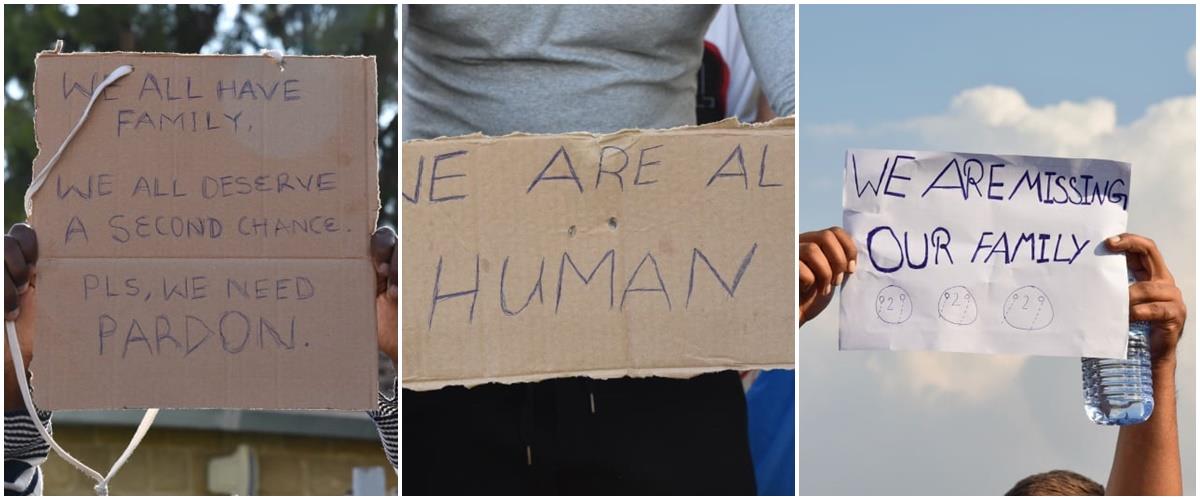 WE ALL HAVE
FAMILY.
WE ALL DESERVE
A SECOND CHANCE.
PLS, WE NEED
PARDON.
WE ARE AL
HUMAN
WE ARE MISSING
OUR FAMILY